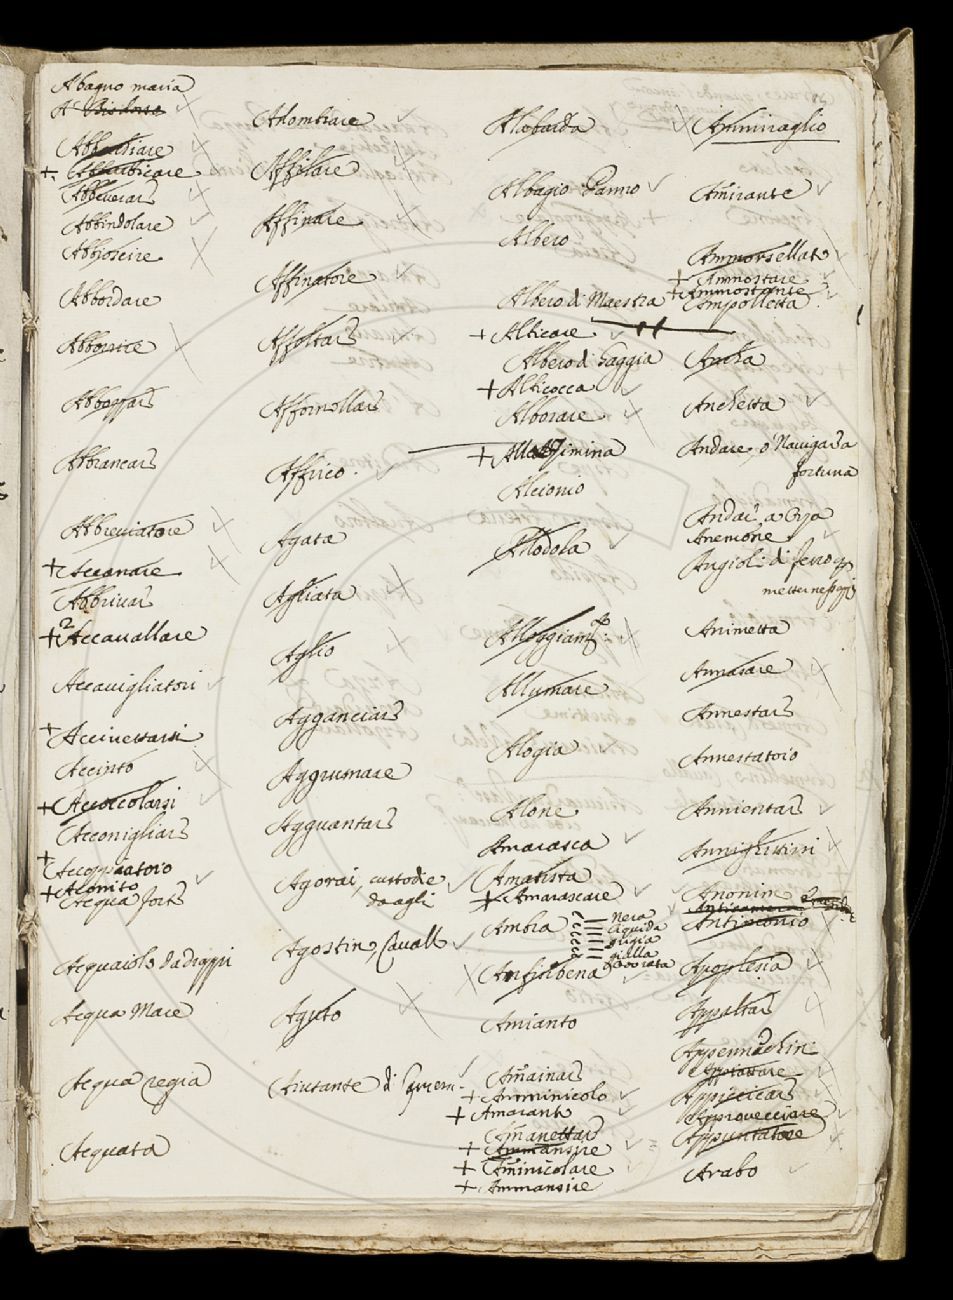 Abagno maria
A Bisdosso
Abbachiare
+ Abbarbicare
Abbeverars
Abbindolare
Abbioscire
Abbordare
Abborrire
Abbozzars
Abbrancars
Abbreviatore
+ Accanare
Abbrivar
+ Accavallare
Accavigliatori
+ Accivettarsi
Accinto
+ Accoccolarsi
Acconigliars
+ Accoppiatoio
+ Aconito
Acqua forts
Acquaiolo da drappi
Acqua Mare
Acqua regia
Acquata
Adombrare
Affilare
Affinare
Affinatore
Affoltars
Affornellars
Affrico
Agata
Agliata
Aglio
Agganciars
Aggrumare
Agguantars
Agorai, custodie
da agli
Agostin, Cavall
Aguto
Aiutante di Camera
Alabarda
Albagio Panno
Albero
Albero di Maestra
+ Albicare
Albero di Gaggia
+ Albicocca
Alborare
+ Allessimina
Alcionio
Allodola
Alloggiam.to
Allumare
Alogia
Alone
Amarasca
Amatista
+ Amarascare
Ambra
Nera
liquida
grigia
gialla
odorata
Anfisibena
Amianto
Am̃ainars
+ Amminicolo
+ Amaranto
Am̃anettar
+ Ammansire
+ Am̃inicolare
+ Ammansire
Ammiraglio
Am̃irante
Ammorsellato
+ Ammostare
+ Ammostante
Ampolletta
Ancha
Anchetta
Andare, o Navigar a
fortuna
Andar a Orza
Anemone
Angioli di ferro p
metter ne pezzi
Animetta
Annasare
Annestars
Annestatoio
Annientars
Annighittiri
Anonin
Anticamera
Antimonio
Apoplesia
Appaltars
Appennachin
Appiattare
Appiccicars
Approvecciare
Appuntatore
Arabo